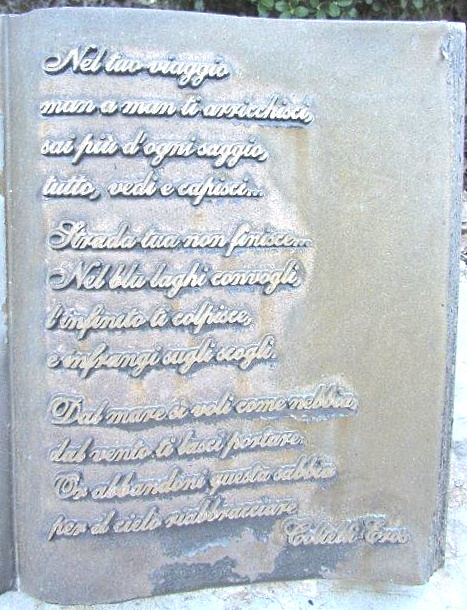 Nel tuo viaggio
man a man ti arricchisci,
sai più d'ogni saggio,
tutto, vedi e capisci...
Strada tua non finisce...
Nel blù laghi convogli,
l'infinito ti colpisce,
e infrangi sugli scogli.
Dal mare si voli come nebbia,
dal vento ti lasci portare.
Or abbandoni questa sabbia
per il cielo riabbracciare
Eros